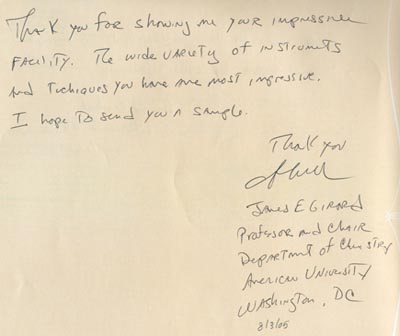 Thank you for showing me your impressive
facility. The wide variety of instruments
and techniques you have are most impressive.
I hope to send you a sample.
Thank you
James E Girard
Professor and Chair
Department of Chemistry
American University
Washington, DC
8/3/05